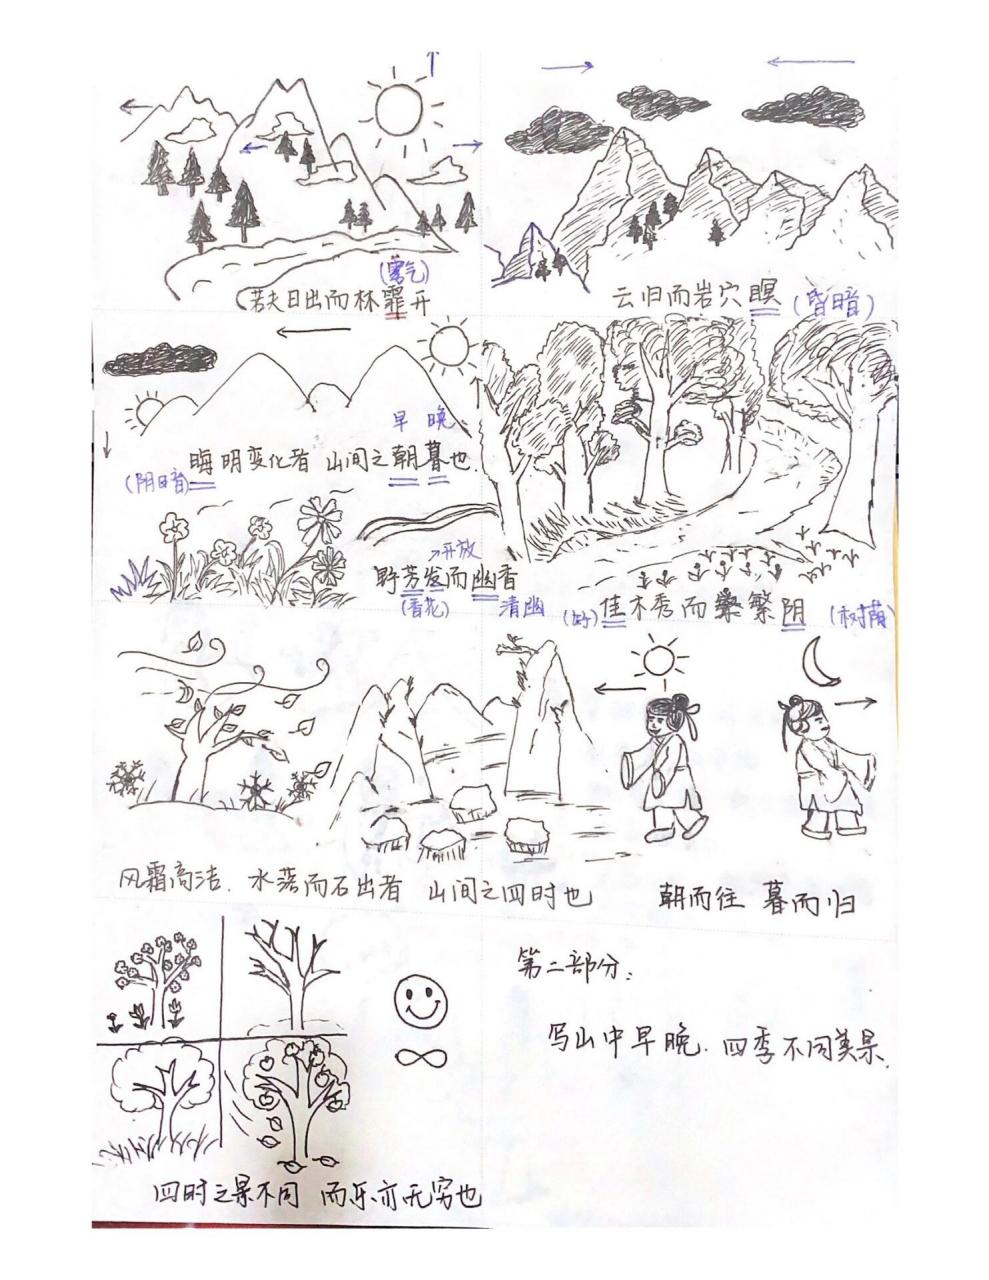 (雾气)
若夫日出而林霏开
云归而岩穴暝 (昏暗)
早 晚
晦明变化者 山间之朝暮也
(阴暗)
开放
野芳发而幽香
(香花) 清幽
(好) 佳木秀而繁阴 (树荫)
风霜高洁. 水落而石出者 山间之四时也
朝而往 暮而归
第二部分:
写山中早晚. 四季不同美景.
四时之景不同 而乐亦无穷也